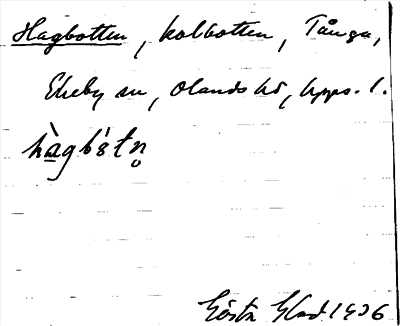 Hagbotten, kolbotten, Tånga,
Ekeby sn, Olands hd, Upps. l.
hàgbstn̥
Gösta Glad 1936